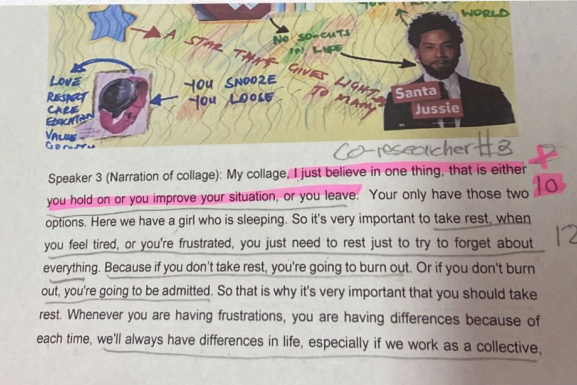 WORLD
NO SHORTCUTS
IN LIFE
A STAR THAT GIVES LIGHTS
TO MANY
LOVE
RESPECT
CARE
EDUCATION
VALUE
GROWTH
YOU SNOOZE
YOU LOOSE
Santa
Jussie
Co-researcher #3
Speaker 3 (Narration of collage): My collage, I just believe in one thing, that is either
you hold on or you improve your situation, or you leave. Your only have those two
10
options. Here we have a girl who is sleeping. So it's very important to take rest, when
you feel tired, or you're frustrated, you just need to rest just to try to forget about
12
everything. Because if you don't take rest, you're going to burn out. Or if you don't burn
out, you're going to be admitted. So that is why it's very important that you should take
rest. Whenever you are having frustrations, you are having differences because of
each time, we'll always have differences in life, especially if we work as a collective,